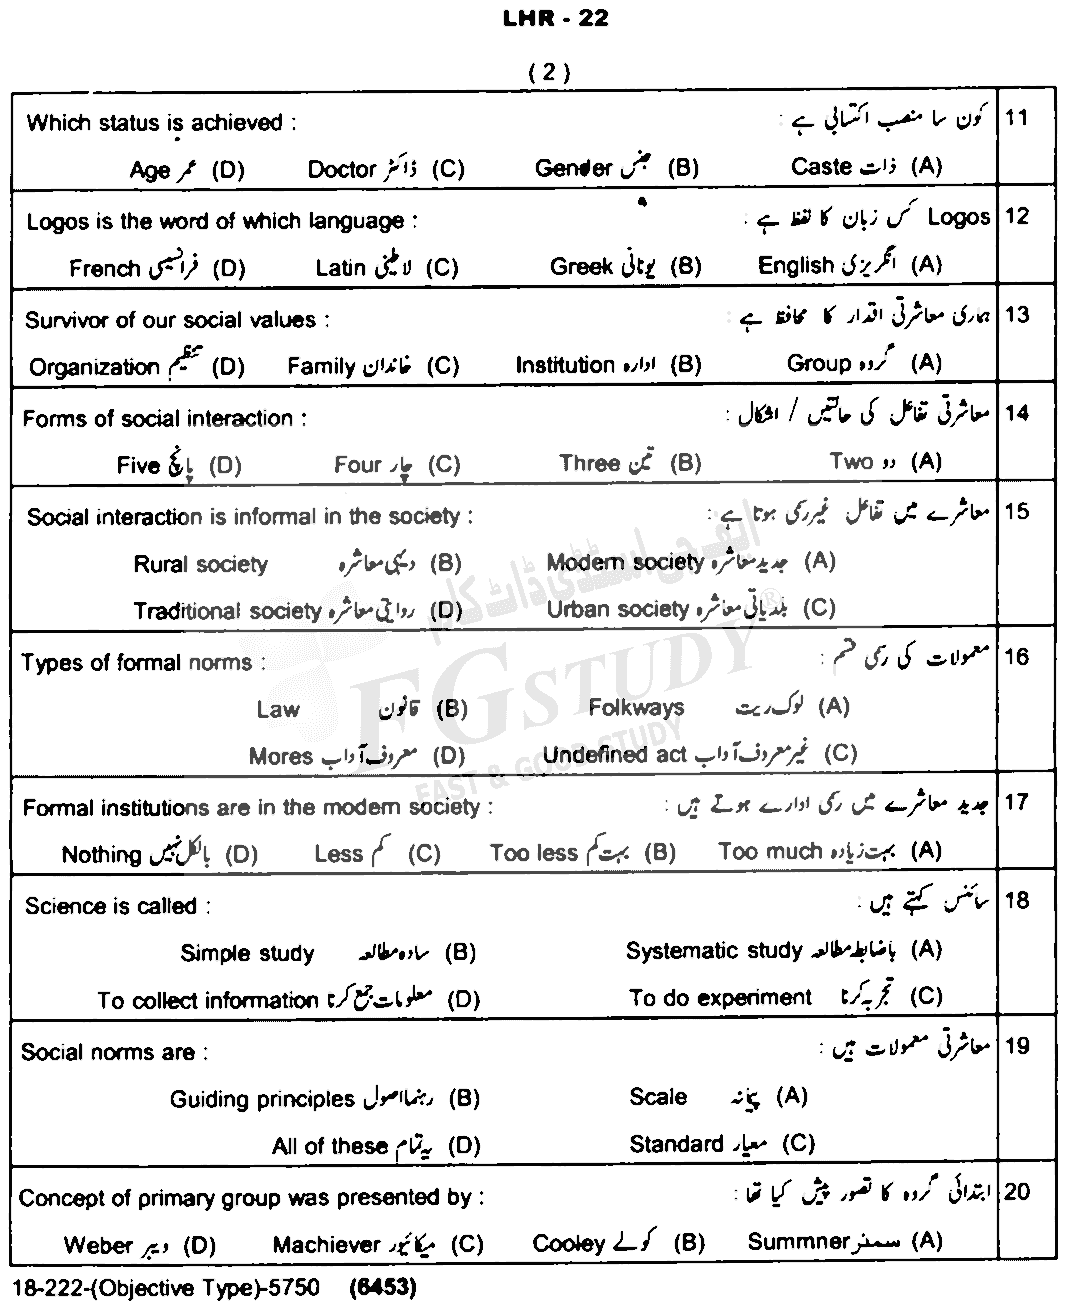 LHR - 22
(2)
11 کون سا منصب اکتسابی ہے : Which status is achieved :
(A) ذات Caste (B) جنس Gender (C) ڈاکٹر Doctor (D) عمر Age
12 Logos کس زبان کا لفظ ہے : Logos is the word of which language :
(A) انگریزی English (B) یونانی Greek (C) لاطینی Latin (D) فرانسیسی French
13 ہماری معاشرتی اقدار کا محافظ ہے : Survivor of our social values :
(A) گروہ Group (B) ادارہ Institution (C) خاندان Family (D) تنظیم Organization
14 معاشرتی تفاعل کی حالتیں / اشکال : Forms of social interaction :
(A) دو Two (B) تین Three (C) چار Four (D) پانچ Five
15 معاشرے میں تفاعل غیر رسمی ہوتا ہے : Social interaction is informal in the society :
(A) جدید معاشرہ Modern society (B) دیہی معاشرہ Rural society
(C) بلدیاتی معاشرہ Urban society (D) روایتی معاشرہ Traditional society
16 معمولات کی رسمی قسم : Types of formal norms :
(A) لوک ریت Folkways (B) قانون Law
(C) غیر معروف آداب Undefined act (D) معروف آداب Mores
17 جدید معاشرے میں رسمی ادارے ہوتے ہیں : Formal institutions are in the modern society :
(A) بہت زیادہ Too much (B) بہت کم Too less (C) کم Less (D) بالکل نہیں Nothing
18 سائنس کہتے ہیں : Science is called :
(A) باضابطہ مطالعہ Systematic study (B) سادہ مطالعہ Simple study
(C) تجربہ کرنا To do experiment (D) معلومات جمع کرنا To collect information
19 معاشرتی معمولات ہیں : Social norms are :
(A) پیمانہ Scale (B) رہنما اصول Guiding principles
(C) معیار Standard (D) یہ تمام All of these
20 ابتدائی گروہ کا تصور پیش کیا تھا : Concept of primary group was presented by :
(A) سمنر Summner (B) کولے Cooley (C) میکائیور Machiever (D) ویبر Weber
18-222-(Objective Type)-5750 (6453)
ایف جی اسٹڈی ڈاٹ کام
FGSTUDY ®
FAST & GOOD STUDY